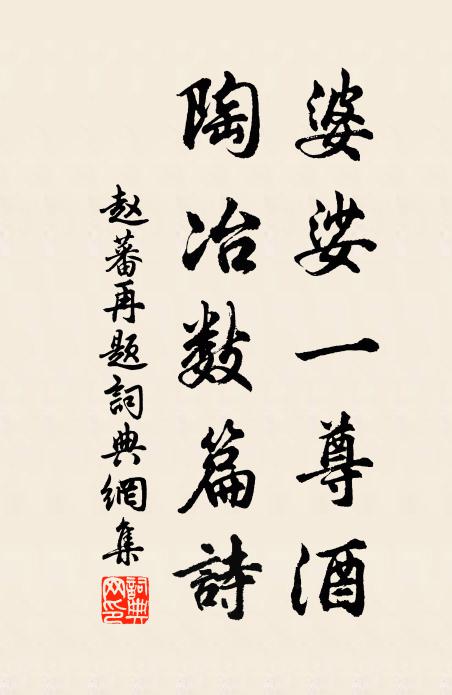 婆娑一尊酒
陶冶数篇詩
赵蕃再题詞典網集
詞典网印